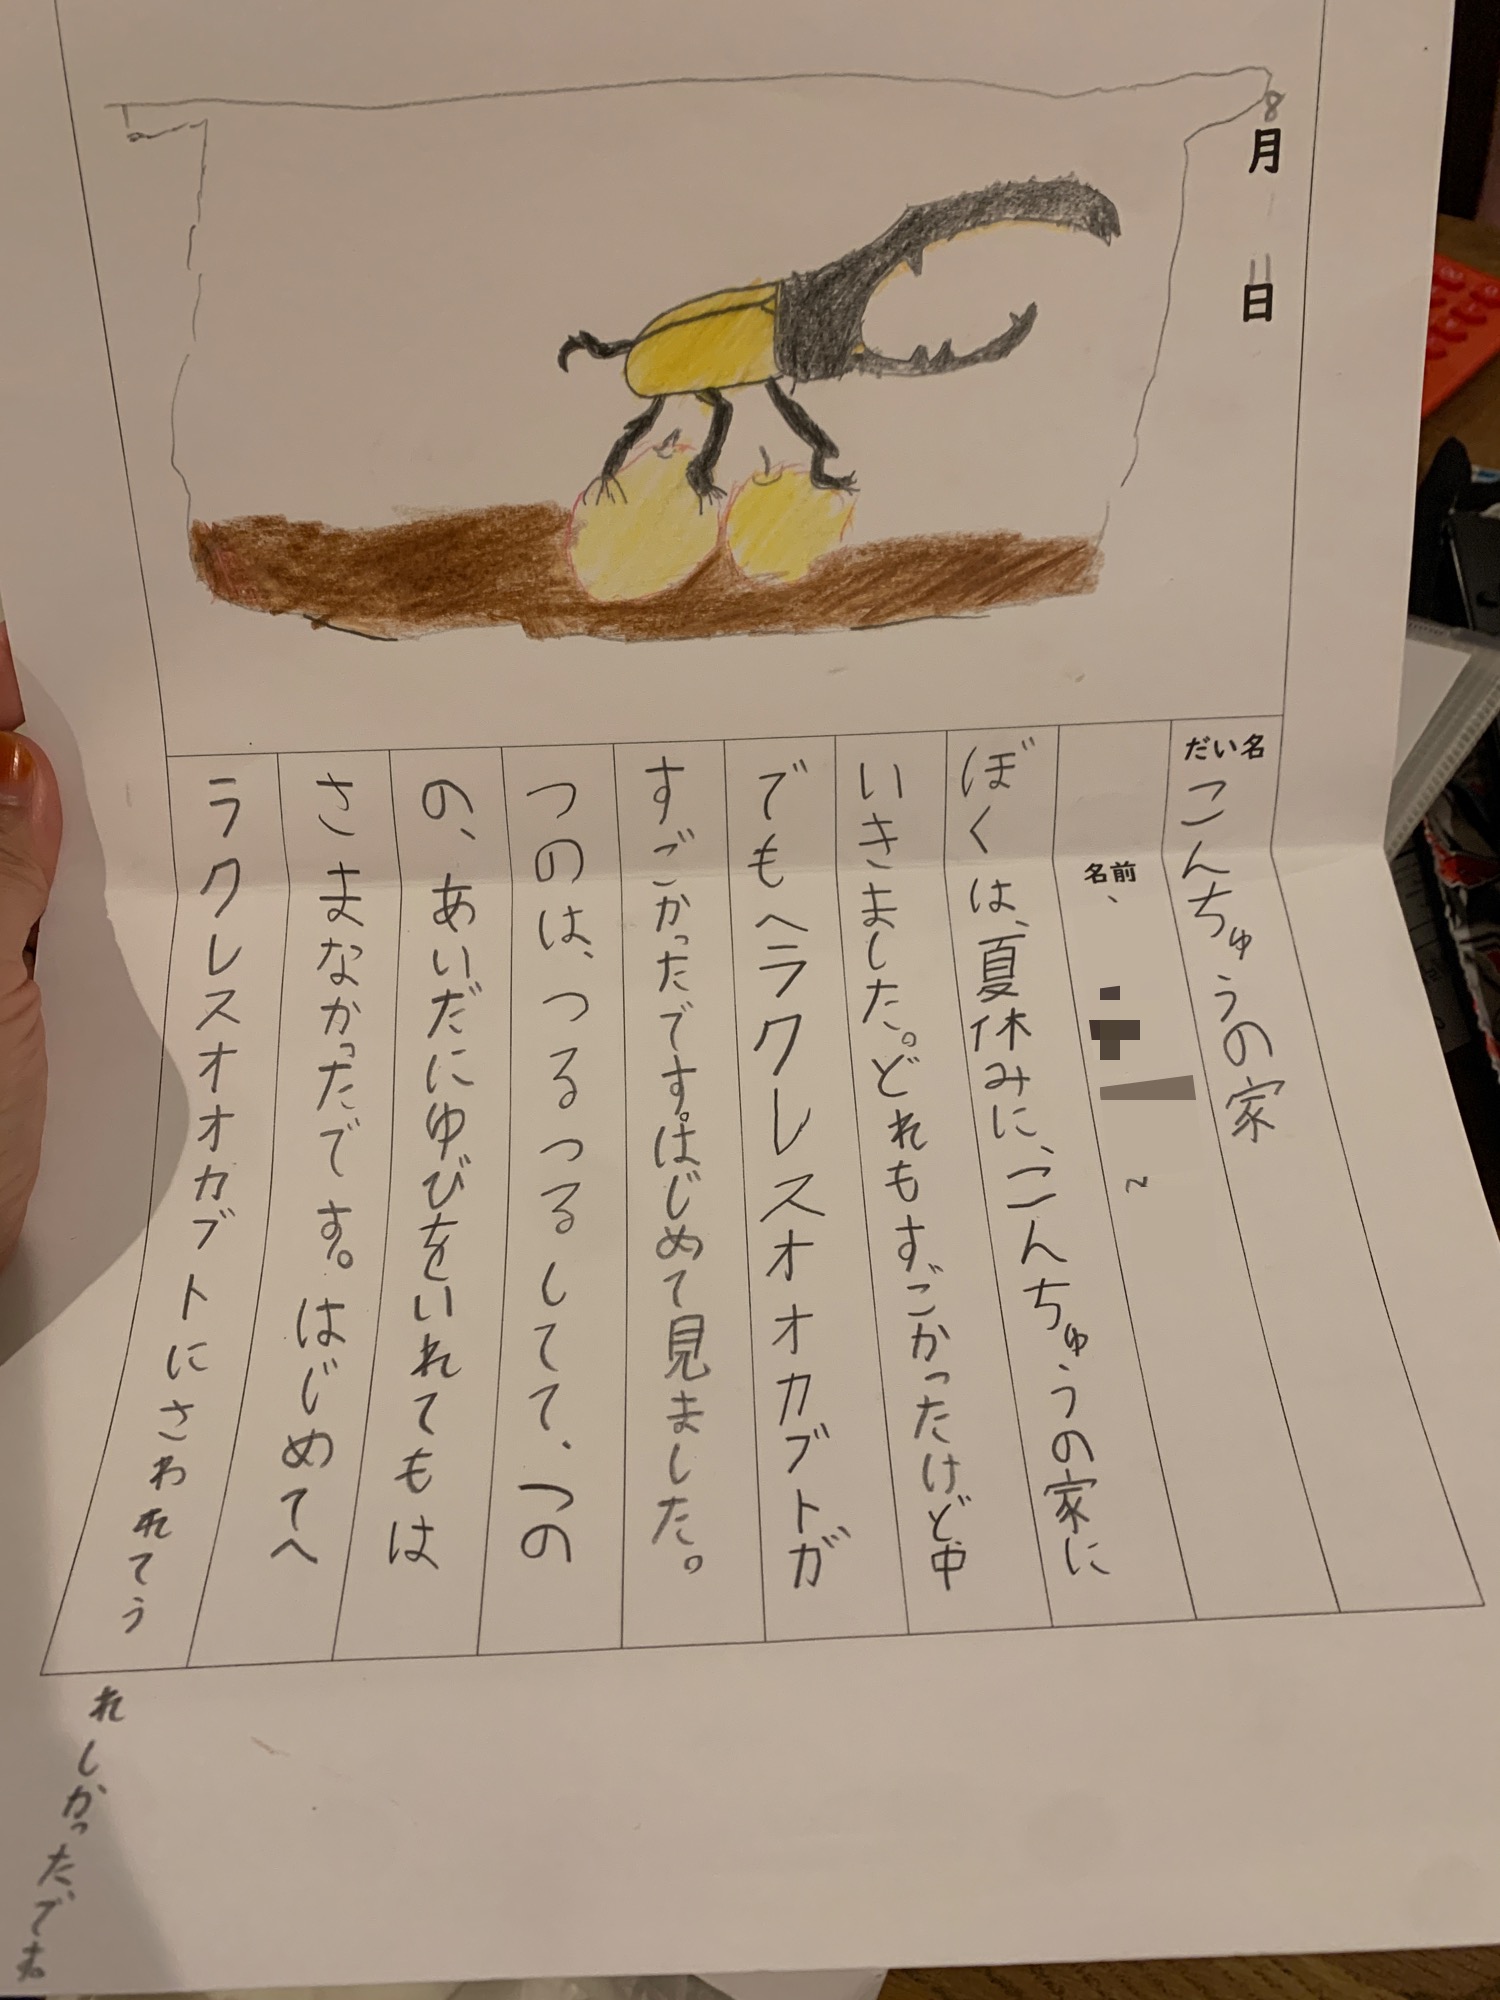 8月11日
だい名 こんちゅうの家
名前
ぼくは、夏休みに、こんちゅうの家に
いきました。どれもすごかったけど中
でもヘラクレスオオカブトガ
すごかったです。はじめて見ました。
つのは、つるつるしてて、つの
の、あいだにゆびをいれてもは
さまなかったです。はじめてヘ
ラクレスオオカブトにさわれてう
れしかったです。